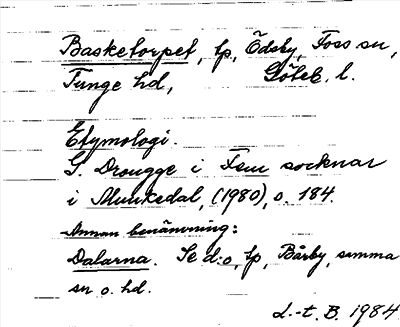 Basketorpet, tp, Ödsby, Foss sn,
Tunge hd, Göteb. l.
Etymologi.
G. Drougge i Fem socknar
i Munkedal, (1980), s. 184.
Annan benämning:
Dalarna. Se d:o, tp, Bärby, samma
sn o. hd.
L.-t. B. 1984